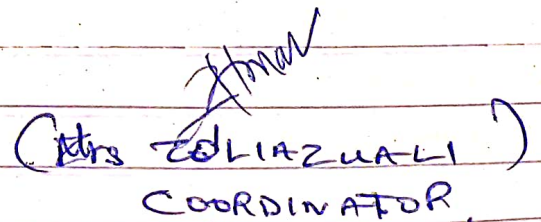 (Mrs ZOLIAZUALI)
COORDINATOR